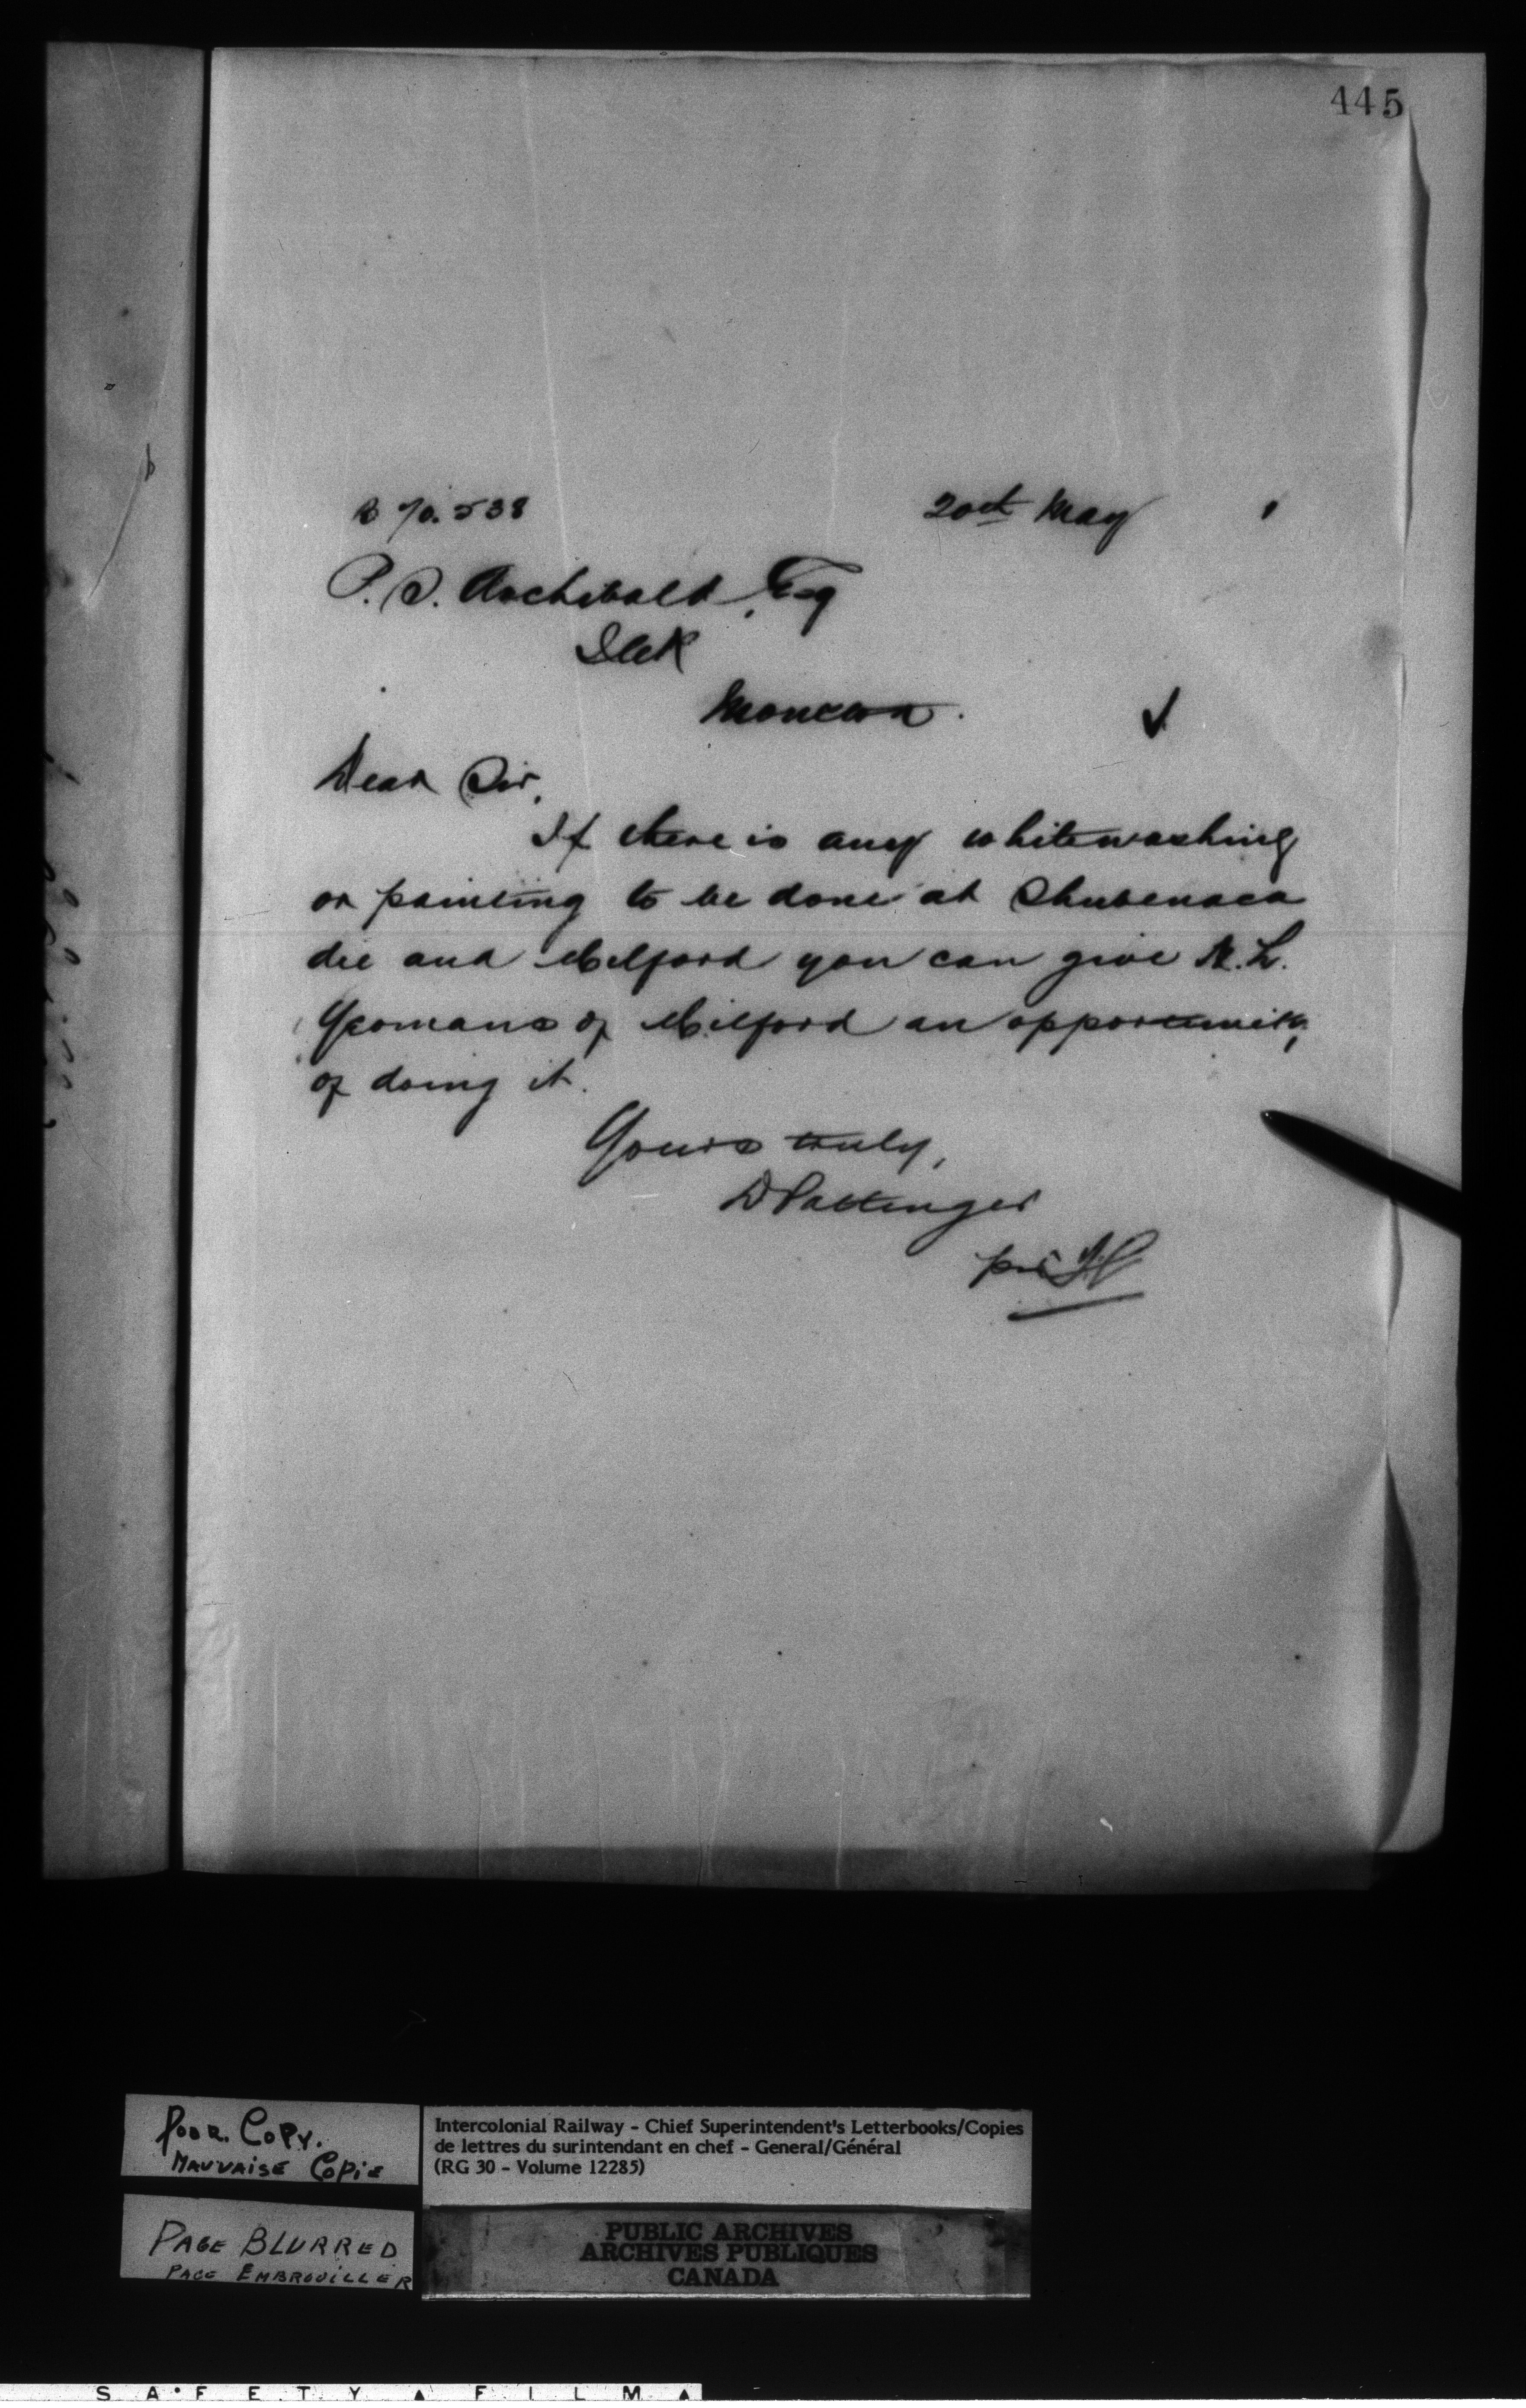 445
20th May
P. S. Archibald, Esq
Moncton.
Dear Sir,
If there is any whitewashing
or painting to be done at Shubenaca
die and Milford you can give
Yeomans of Milford an opportunity
of doing it.
Yours truly,
D Pottinger
Poor. Copy.
Mauvaise Copie
Page Blurred
Page Embrouiller
Intercolonial Railway - Chief Superintendent's Letterbooks/Copies
de lettres du surintendant en chef - General/Général
(RG 30 - Volume 12285)
PUBLIC ARCHIVES
ARCHIVES PUBLIQUES
CANADA
SAFETY FILM